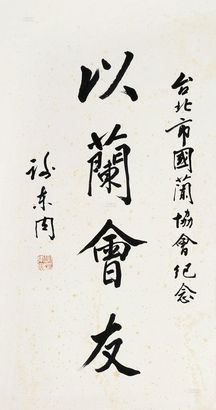 台北市國蘭協會紀念
以蘭會友
謝東閔